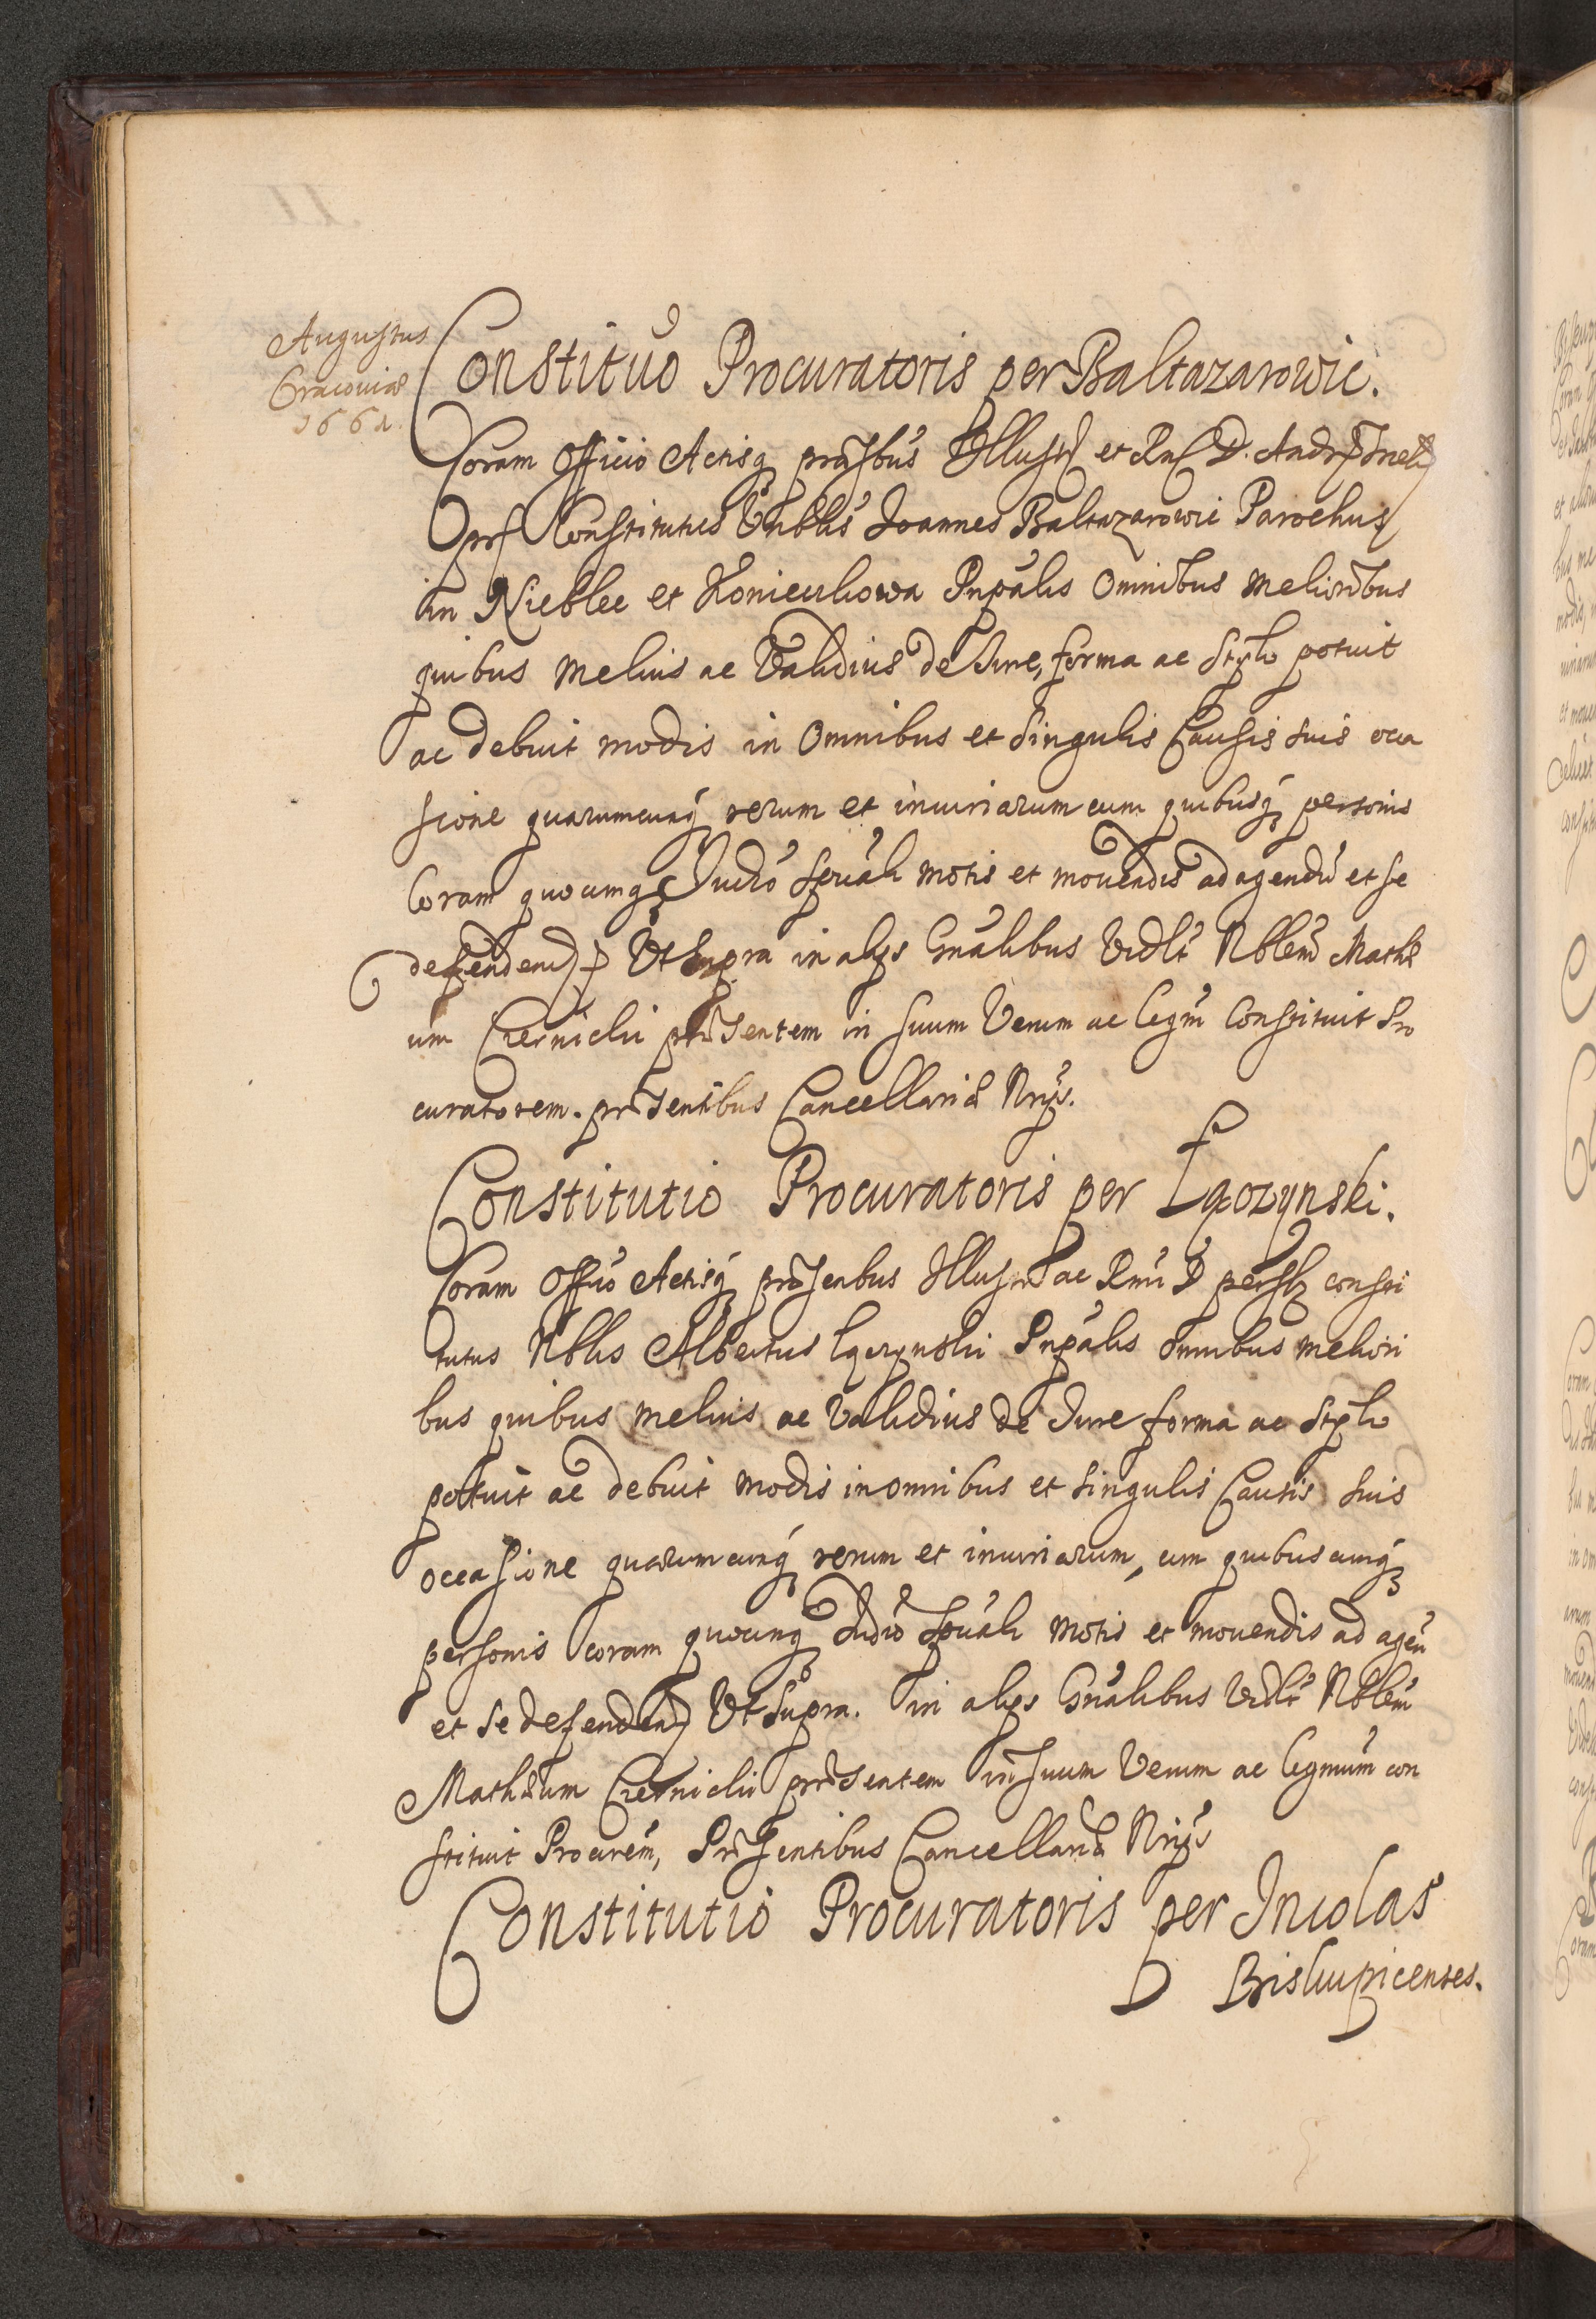 Augustus
Cracoviae
1662.
Constitutio Procuratoris per Baltazarowic.
Coram Officio Actisq praesbus Illustr et Rnd D. Andr Trneb
prs Constitutus Vnblis Joannes Baltazarowic Parochus
in Nieblec et Konieczkowa Pnpalis Omnibus melioribus
quibus melius ac Validius de Iure, forma ac Stylo potuit
ac debuit modis in Omnibus et Singulis Causis suis occa
sione quarumcunq rerum et iniuriarum cum quibusq personis
Coram quocumq Iudio Spuali motis et movendis ad agendu et se
defendend Ut Supra in alys Gnalibus Vidlt Nblem Mathe
um Czernicki praesentem in suum Verum ac legm Constituit Pro
curatorem. praesentibus Cancellariae Nrys.
Constitutio Procuratoris per Łąozynski.
Coram Offio Actisq praesenbus Illustr ac Rmi D persl consti
tutus Nblis Albertus Łączynski Pnpalis omnibus meliori
bus quibus melius ac Validius de Iure forma ac Stylo
potuit ac debuit modis in omnibus et singulis Causis suis
occasione quarumcunq rerum et iniuriarum, cum quibuscunq
personis coram quocunq Iudio Spuali motis et movendis ad agen
et se defendend Ut Supra. in alys Gnalibus Vidlt Nblem
Mathaeum Czernicki praesentem in suum Verum ac legmum con
stituit Procurem, Praesentibus Cancellariae Nrys
Constitutio Procuratoris per Incolas
Biskupicenses.